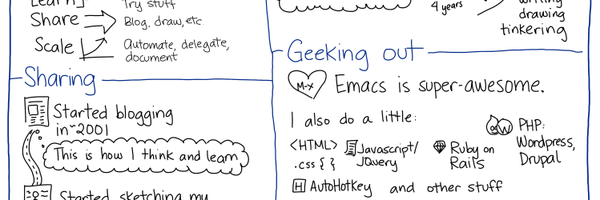 Learn
Try stuff
Share
Blog, draw, etc
Scale
Automate, delegate,
document
Sharing
Started blogging
in ~2001
This is how I think and learn
Started sketching my
4 years
writing
drawing
tinkering
Geeking out
M-x
Emacs is super-awesome.
I also do a little:
<HTML>
.css { }
Javascript/
JQuery
Ruby on
Rails
PHP:
Wordpress,
Drupal
H AutoHotkey and other stuff